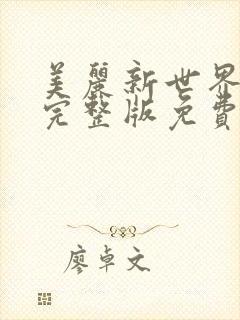 美麗新世界
完整版免費
廖卓文